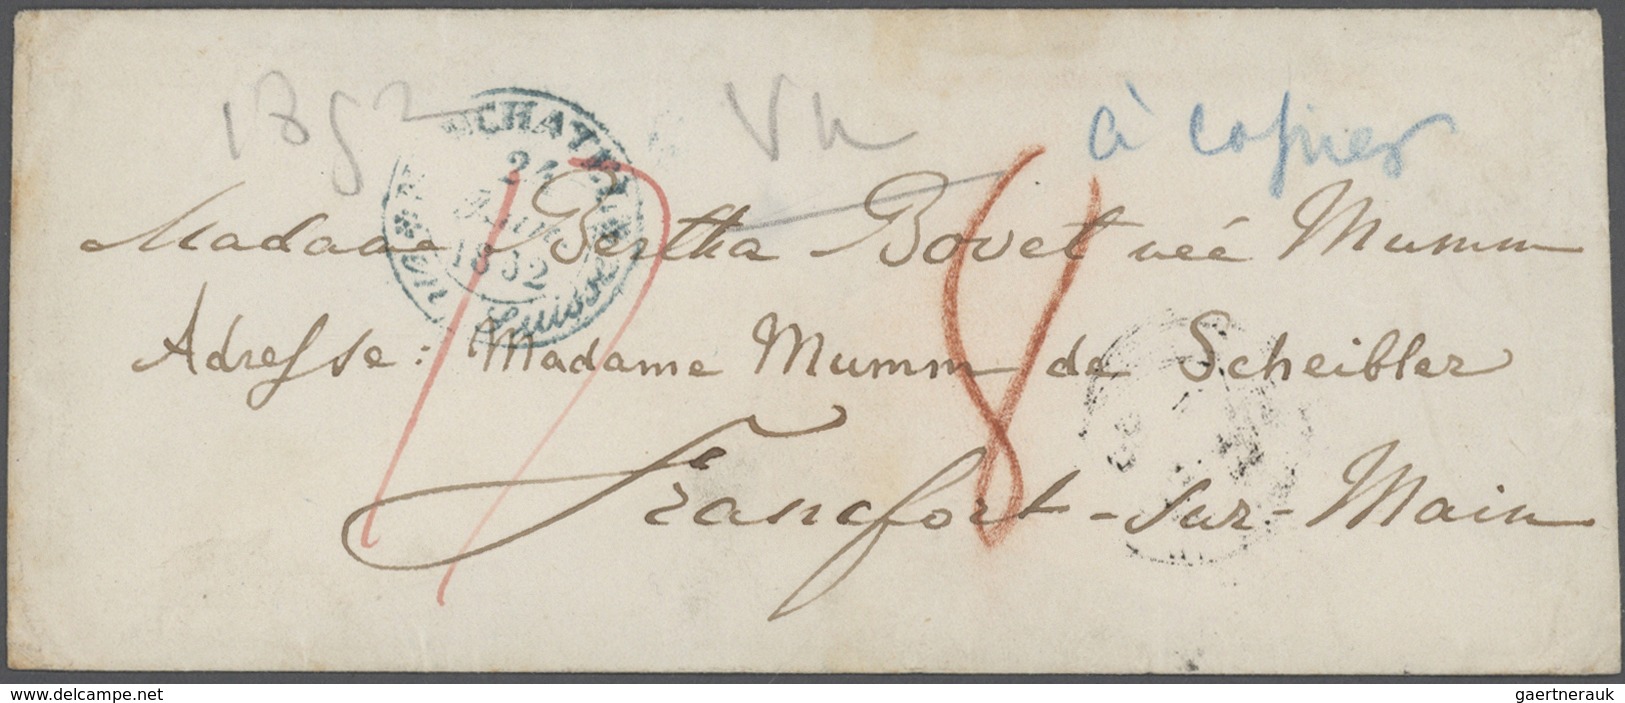 1852 Vu à copier
NEUCHATEL
24
1852
Suisse
17 8
Madame Bertha Bovet neé Mumm
Adresse: Madame Mumm de Scheibler
Francfort-sur-Main
delcampe.net
gaertnerauk